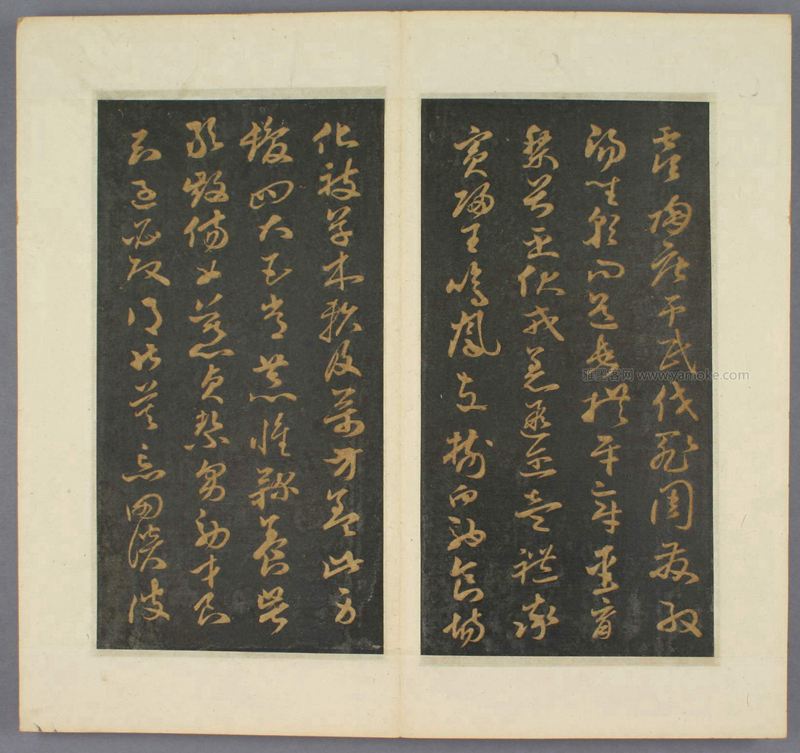 虞陶唐弔民伐罪周發殷
湯坐朝問道垂拱平章愛育
黎首臣伏戎羌遐邇壹體率
賓歸王鳴鳳在樹白駒食場
化被草木賴及萬方蓋此身
髮四大五常恭惟鞠養豈
敢毀傷女慕貞絜男效才良
知過必改得能莫忘罔談彼
雅墨客网 www.yamoke.com